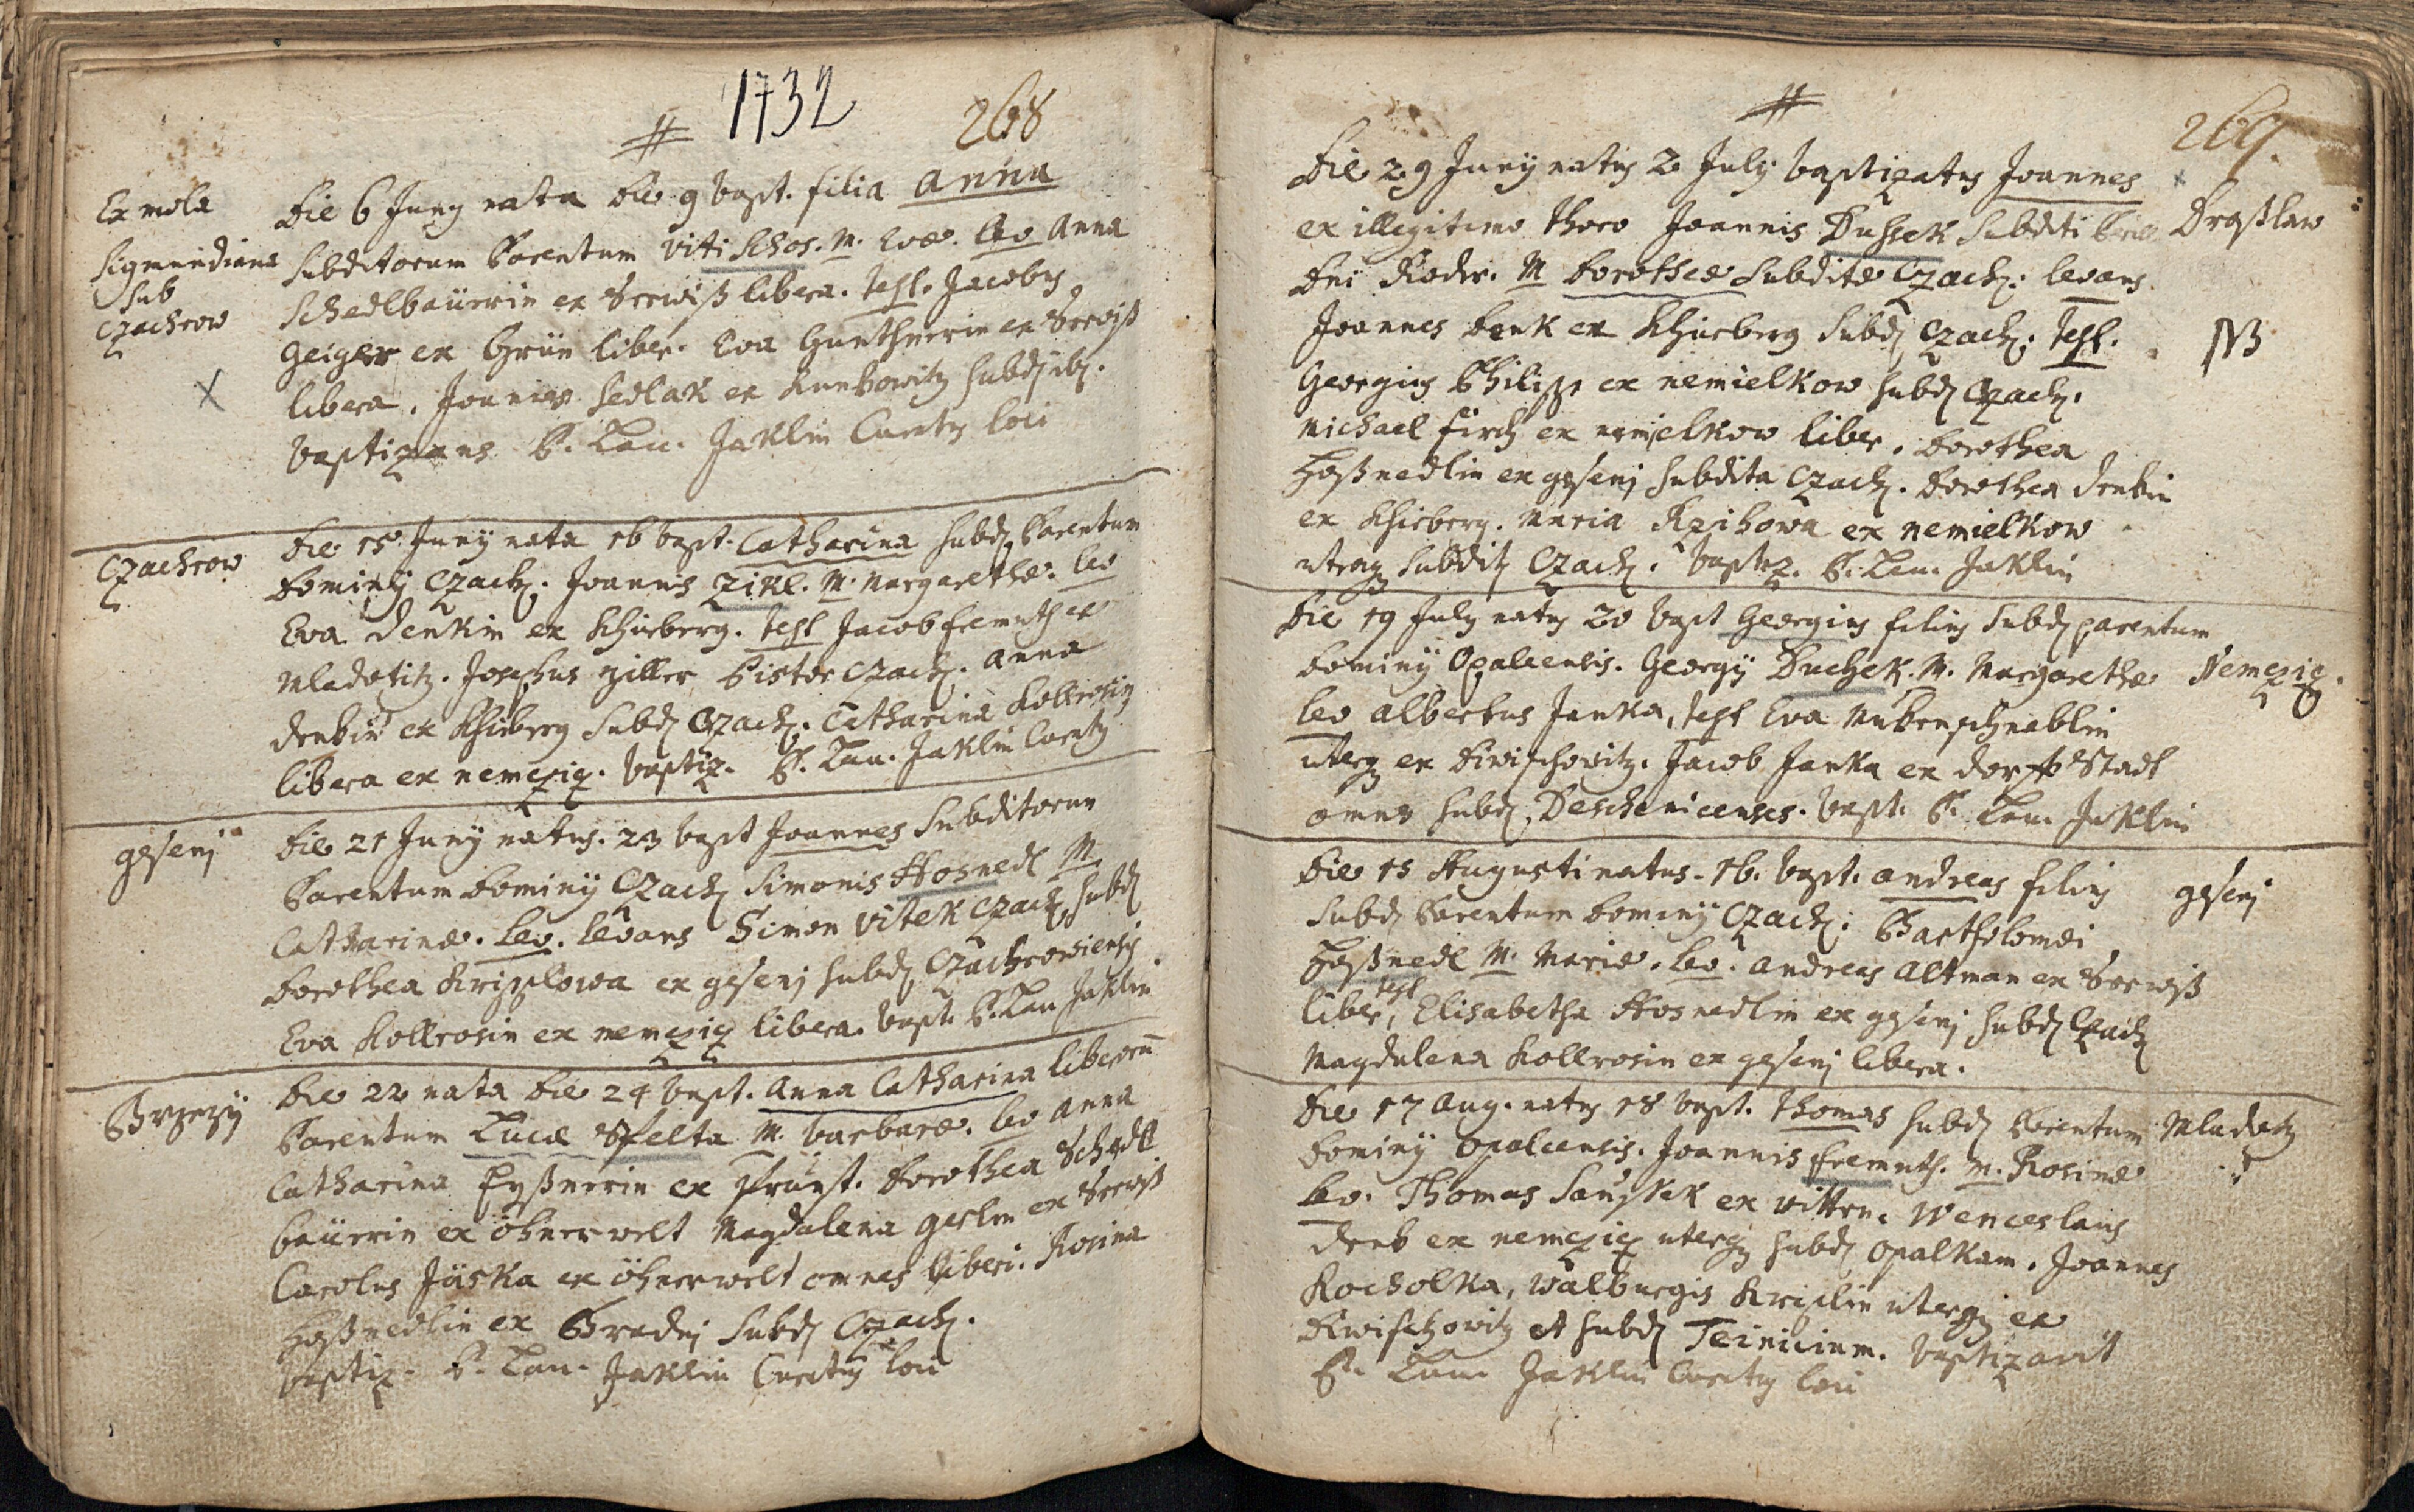 1732
268
Ex mola
Sigmundiana
sub
Czachrow
X
Die 6 Juny nata die 9 bapt. filia Anna
Subditorum Parentum Viti Schos. M. Evæ. Lev Anna
Schedlbaüerin ex Seewiß libera. Test. Jacobus
Geiger ex Grün liber. Eva Gunthnerin ex Seewiß
libera. Joannes Sedlak ex Kunkowitz subd ib.
baptizans P. Lau. Jaklin Curatus loci
Czachrow
Die 15 Juny nata 16 bapt. Catharina subd. Parentum
Dominÿ Czach. Joannis Zikl. M. Margarethæ. Lev
Eva Denkin ex Khirberg. Test Jacob Fremuth ex
Mladotitz. Josephus Ziller Pistor Czach. Anna
Denkin ex Khirberg Subd Czach. Catharina Kollrosin
libera ex Nemczicz. baptiz. P. Lau. Jaklin Curatus
gesenj
Die 21 Juny natus. 23 bapt Joannes Subditorum
Parentum Dominÿ Czach Simonis Hosnedl M
Catharinæ. Lev. levans Simon Vitek Czach, subd
Dorothea Kripplowa ex gesenj subd Czachroviensis.
Eva Kollrosin ex nemczicz libera. bapt. P. Lau Jaklin
Brzezÿ
Die 22 nata die 24 bapt. Anna Catharina liberorum
Parentum Lucæ Spelta M. barbaræ. lev Anna
Catharina Eyßnerin ex Prünst. Dorothea Schedl
baüerin ex öhnerwelt Magdalena gerlin ex Seewiß
Carolus Jüska ex öhnerwelt omnes liberi. Rosina
Hoßnedlin ex Bradnj Subd Czach.
baptiz. P. Lau. Jaklin Curatus loci
269.
Die 29 Juny natus 2 July baptizatus Joannes
ex illegitimo thoro Joannis Dussek Subditi
Dni Rodw. M Dorotheæ Subditæ Czach. levans
Joannes Denk ex Khirberg Subd Czach. Test.
Georgius Philipp ex nemielkow subd Czach.
Michael Firch ex nemielkow liber. Dorothea
Hoßnedlin ex gesenj subdita Czach. Dorothea Denkin
ex Khirberg. Maria Rzihowa ex nemielkow
utraq subdita Czach. baptiz. P. Lau. Jaklin
Draßlaw
NB
Die 19 July natus 20 bapt Georgius filius Subd parentum
Dominÿ Opalcensis. Georgÿ Duchek. M. Margarethæ
Lev Albertus Janka, Test Eva Mukenschnablin
uterq ex Diwischowitz. Jacob Janka ex Dorff Stadl
omnes subd. Deschenicenses. bapt. P. Lau. Jaklin
Nemczicz.
Die 15 Augusti natus. 16. bapt. Andreas filius
Subd Parentum Dominÿ Czach. Bartholomæi
Hoßnedl M. Mariæ. Lev. Andreas Altman ex Seewiß
liber, Test Elisabetha Hosnedlin ex gesenj subd Czach
Magdalena Kollrosin ex gesenj libera.
gesenj
Die 17 Aug. natus 18 bapt. Thomas subd Parentum
Dominÿ Opalcensis. Joannis Fremuth. M. Rosinæ
Lev. Thomas Sauskek ex Witten. Wenceslaus
Denk ex nemczicz uterq subd Opalkam. Joannes
Kocholka, Walburgis Kriplin uterq ex
Diwischowitz et subd Teinicium. baptizavit
P. Lau. Jaklin Curatus loci
Mladotz